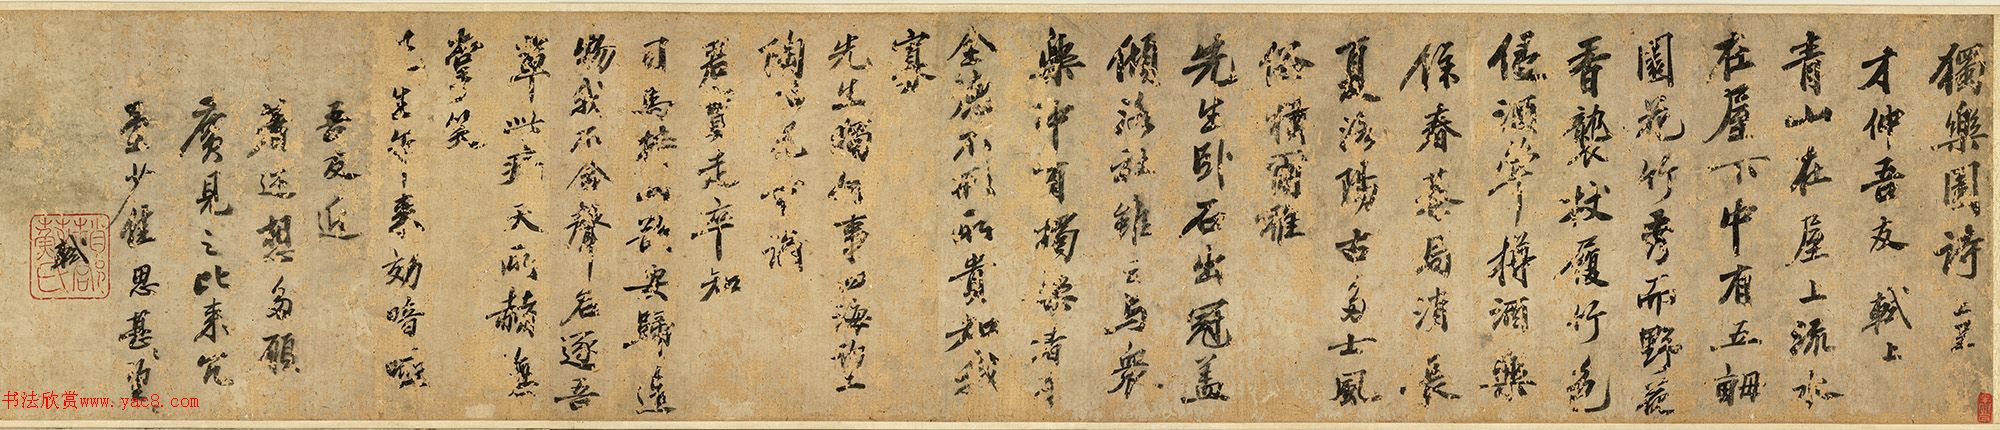 獨樂園詩 呈
才仲吾友 軾上
青山在屋上流水
在屋下中有五畝
園花竹秀而野花
香襲杖履竹色
侵酒斝樽酒樂
餘春棊局消長
夏洛陽古多士風
俗猶爾雅
先生卧不出冠盖
傾洛社雖云與衆
樂中有獨樂者
全德不形所貴知我
寡
先生獨何事四海望
陶冶兒童誦
君實走卒知
司馬持此欲安歸造
物我不舍聲名逐吾
輩此病天所赭無
掌笑
先生年來効喑啞
吾友近
著述想多願
廣見之比來冗
思甚望
軾
趙郡蘇氏
书法欣赏www.yac8.com